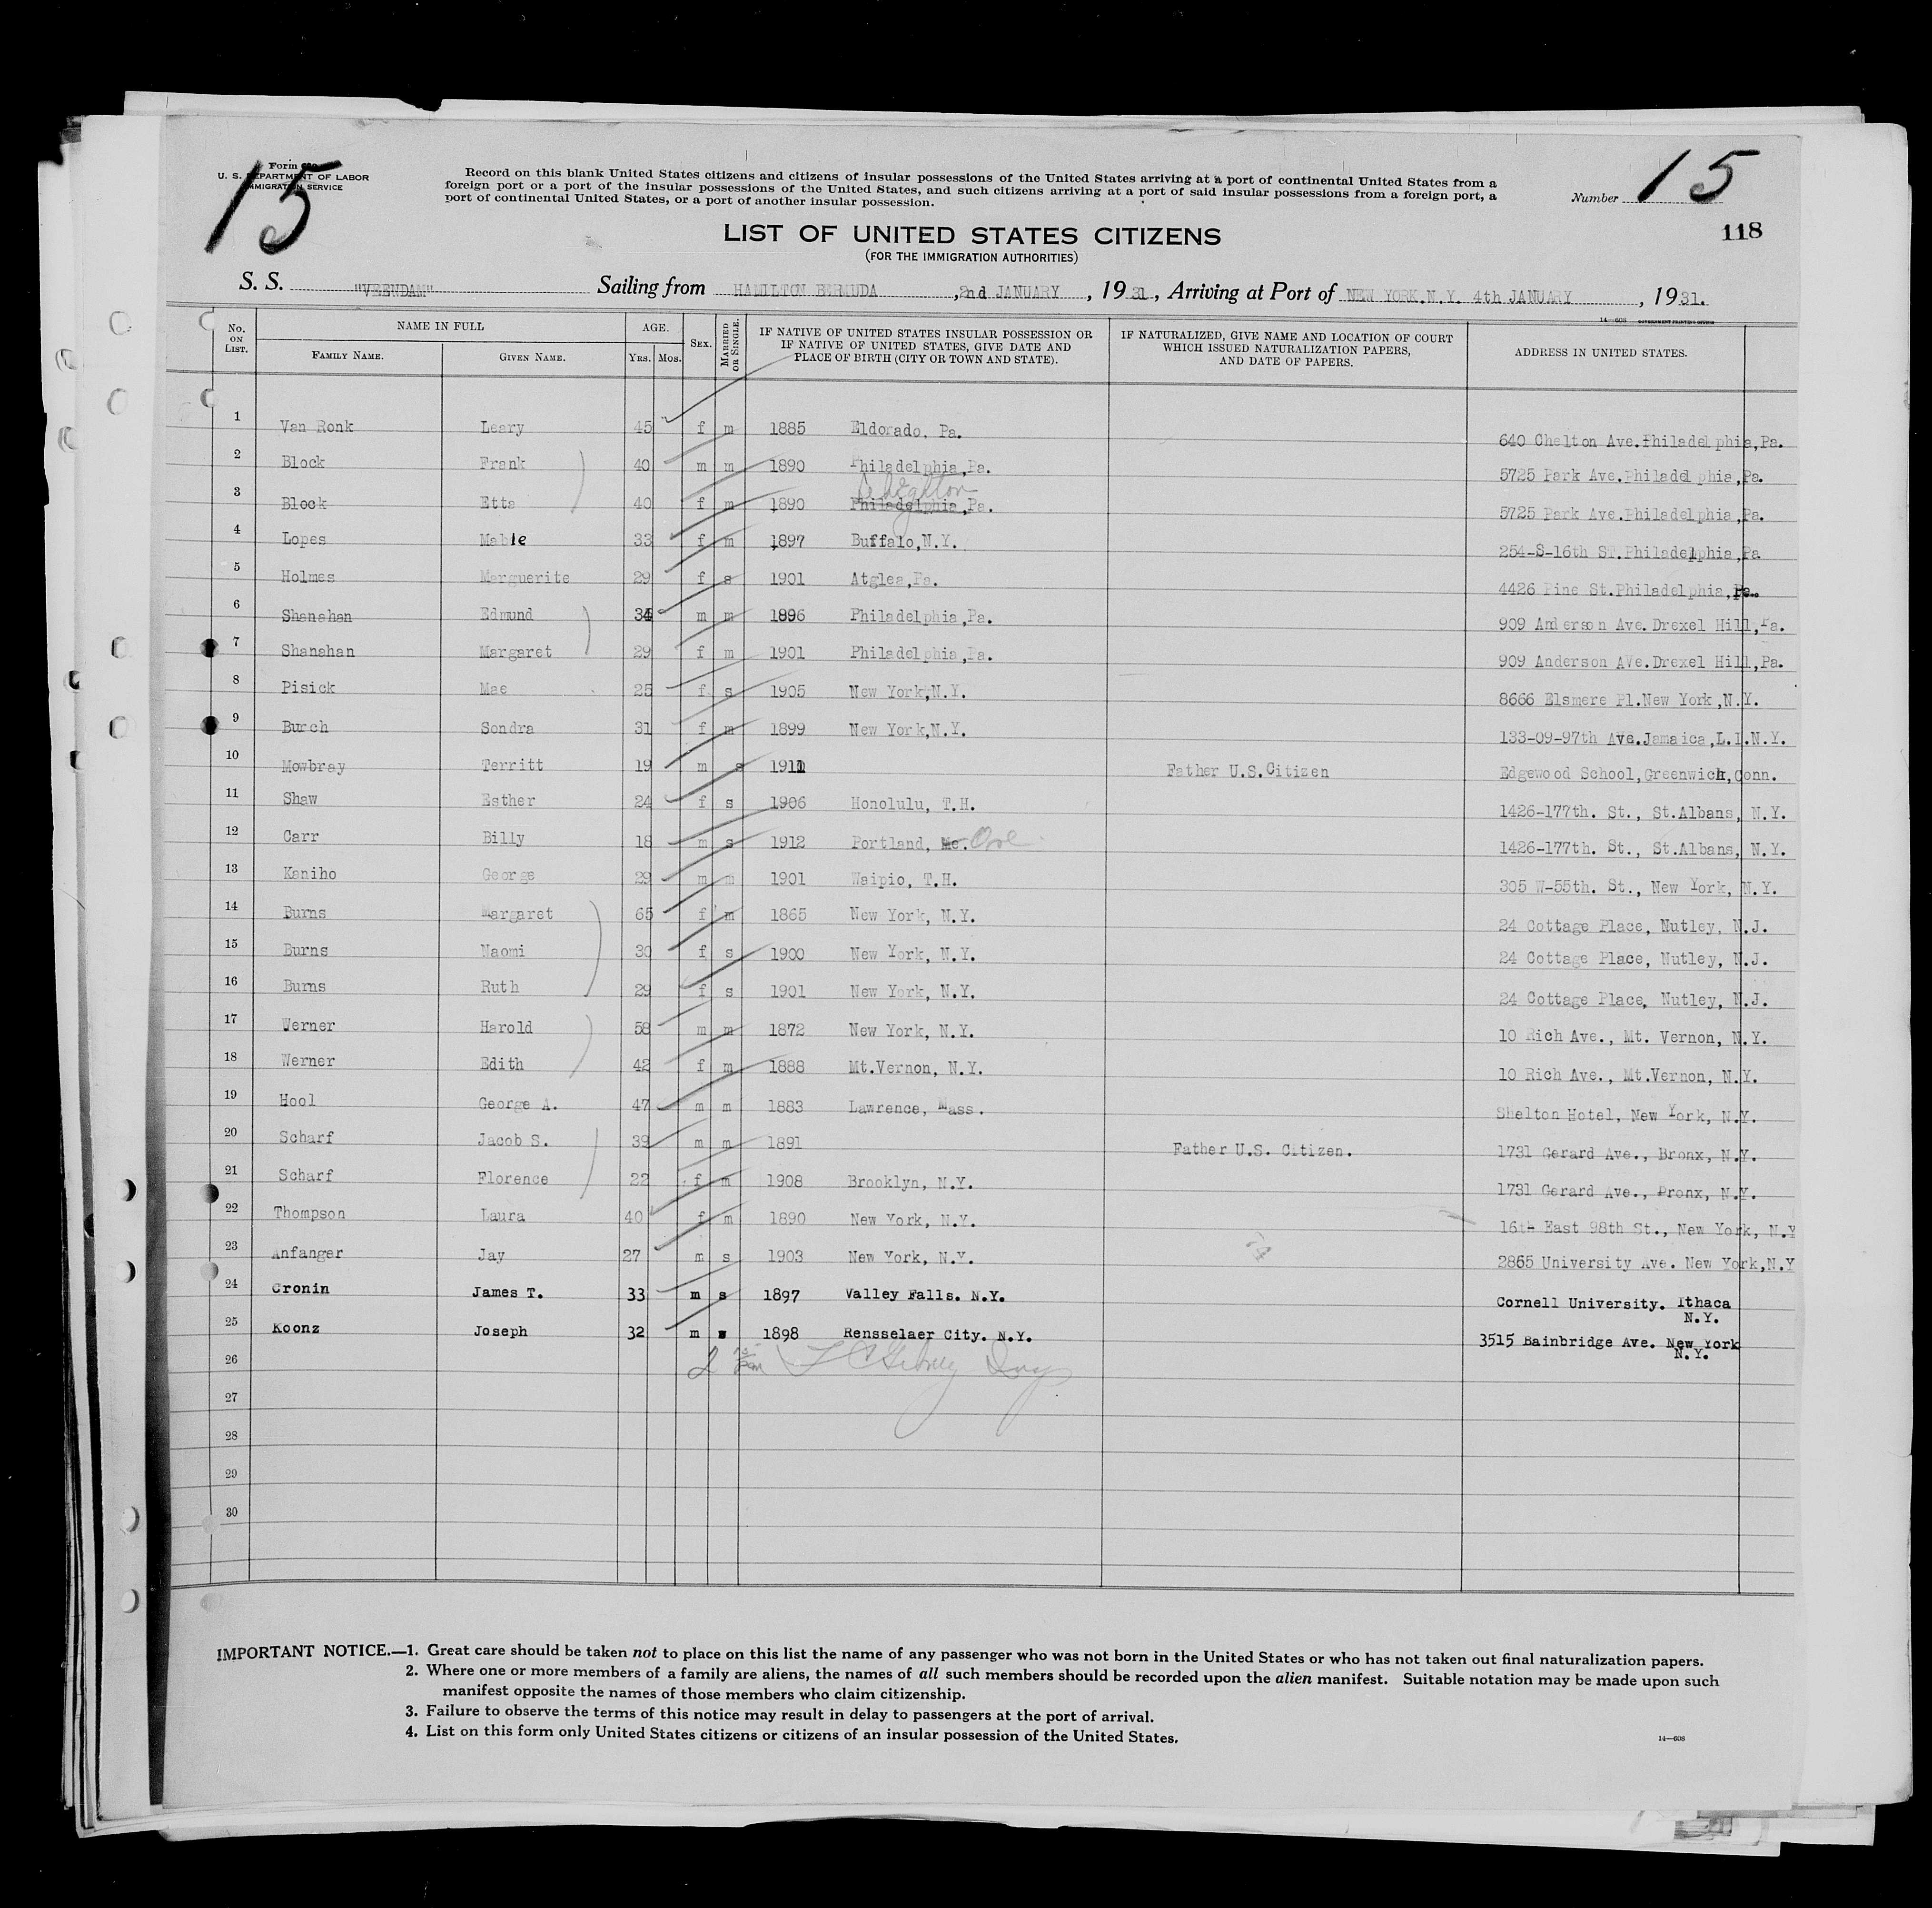 15
Form 630
U. S. DEPARTMENT OF LABOR
IMMIGRATION SERVICE
Record on this blank United States citizens and citizens of insular possessions of the United States arriving at a port of continental United States from a
foreign port or a port of the insular possessions of the United States, and such citizens arriving at a port of said insular possessions from a foreign port, a
port of continental United States, or a port of another insular possession.
Number 15
118
LIST OF UNITED STATES CITIZENS
(FOR THE IMMIGRATION AUTHORITIES)
S. S. "VEENDAM" Sailing from HAMILTON BERMUDA, 2nd JANUARY, 1931, Arriving at Port of NEW YORK.N.Y. 4th JANUARY, 1931.
14—608 GOVERNMENT PRINTING OFFICE
No. ON LIST. NAME IN FULL FAMILY NAME. GIVEN NAME. AGE. YRS. MOS. SEX. MARRIED OR SINGLE. IF NATIVE OF UNITED STATES INSULAR POSSESSION OR IF NATIVE OF UNITED STATES, GIVE DATE AND PLACE OF BIRTH (CITY OR TOWN AND STATE). IF NATURALIZED, GIVE NAME AND LOCATION OF COURT WHICH ISSUED NATURALIZATION PAPERS, AND DATE OF PAPERS. ADDRESS IN UNITED STATES.
1 Van Ronk Leary 45 f m 1885 Eldorado, Pa. 640 Chelton Ave.Philadelphia,Pa.
2 Block Frank 40 m m 1890 Philadelphia,Pa. 5725 Park Ave.Philadelphia,Pa.
Lehighton
3 Block Etta 40 f m 1890 Philadelphia,Pa. 5725 Park Ave.Philadelphia,Pa.
4 Lopes Mable 33 f m 1897 Buffalo,N.Y. 254-S-16th ST.Philadelphia,Pa
5 Holmes Marguerite 29 f s 1901 Atglea,Pa. 4426 Pine St.Philadelphia,Pa.
6 Shanahan Edmund 34 m m 1896 Philadelphia,Pa. 909 Anderson Ave.Drexel Hill,Pa.
7 Shanahan Margaret 29 f m 1901 Philadelphia,Pa. 909 Anderson AVe.Drexel Hill,Pa.
8 Pisick Mae 25 f s 1905 New York,N.Y. 8666 Elsmere Pl.New York,N.Y.
9 Burch Sondra 31 f m 1899 New York,N.Y. 133-09-97th Ave.Jamaica,L.I.N.Y.
10 Mowbray Territt 19 m s 1911 Father U.S.Citizen Edgewood School,Greenwich,Conn.
11 Shaw Esther 24 f s 1906 Honolulu, T.H. 1426-177th. St., St.Albans, N.Y.
12 Carr Billy 18 m s 1912 Portland, Me. Ore 1426-177th. St., St.Albans, N.Y.
13 Kaniho George 29 m m 1901 Waipio, T.H. 305 W-55th. St., New York, N.Y.
14 Burns Margaret 65 f m 1865 New York, N.Y. 24 Cottage Place, Nutley, N.J.
15 Burns Naomi 30 f s 1900 New York, N.Y. 24 Cottage Place, Nutley, N.J.
16 Burns Ruth 29 f s 1901 New York, N.Y. 24 Cottage Place, Nutley, N.J.
17 Werner Harold 58 m m 1872 New York, N.Y. 10 Rich Ave., Mt. Vernon, N.Y.
18 Werner Edith 42 f m 1888 Mt.Vernon, N.Y. 10 Rich Ave., Mt.Vernon, N.Y.
19 Hool George A. 47 m m 1883 Lawrence, Mass. Shelton Hotel, New York, N.Y.
20 Scharf Jacob S. 39 m m 1891 Father U.S. Citizen. 1731 Gerard Ave., Bronx, N.Y.
21 Scharf Florence 22 f m 1908 Brooklyn, N.Y. 1731 Gerard Ave., Bronx, N.Y.
22 Thompson Laura 40 f m 1890 New York, N.Y. 16th East 98th St., New York, N.Y
23 Anfanger Jay 27 m s 1903 New York, N.Y. 2865 University Ave. New York,N.Y
24 Cronin James T. 33 m s 1897 Valley Falls. N.Y. Cornell University. Ithaca
N.Y.
25 Koonz Joseph 32 m s 1898 Rensselaer City. N.Y. 3515 Bainbridge Ave. New York
N.Y.
26
27
28
29
30
IMPORTANT NOTICE.—1. Great care should be taken not to place on this list the name of any passenger who was not born in the United States or who has not taken out final naturalization papers.
2. Where one or more members of a family are aliens, the names of all such members should be recorded upon the alien manifest. Suitable notation may be made upon such
manifest opposite the names of those members who claim citizenship.
3. Failure to observe the terms of this notice may result in delay to passengers at the port of arrival.
4. List on this form only United States citizens or citizens of an insular possession of the United States.
14—608